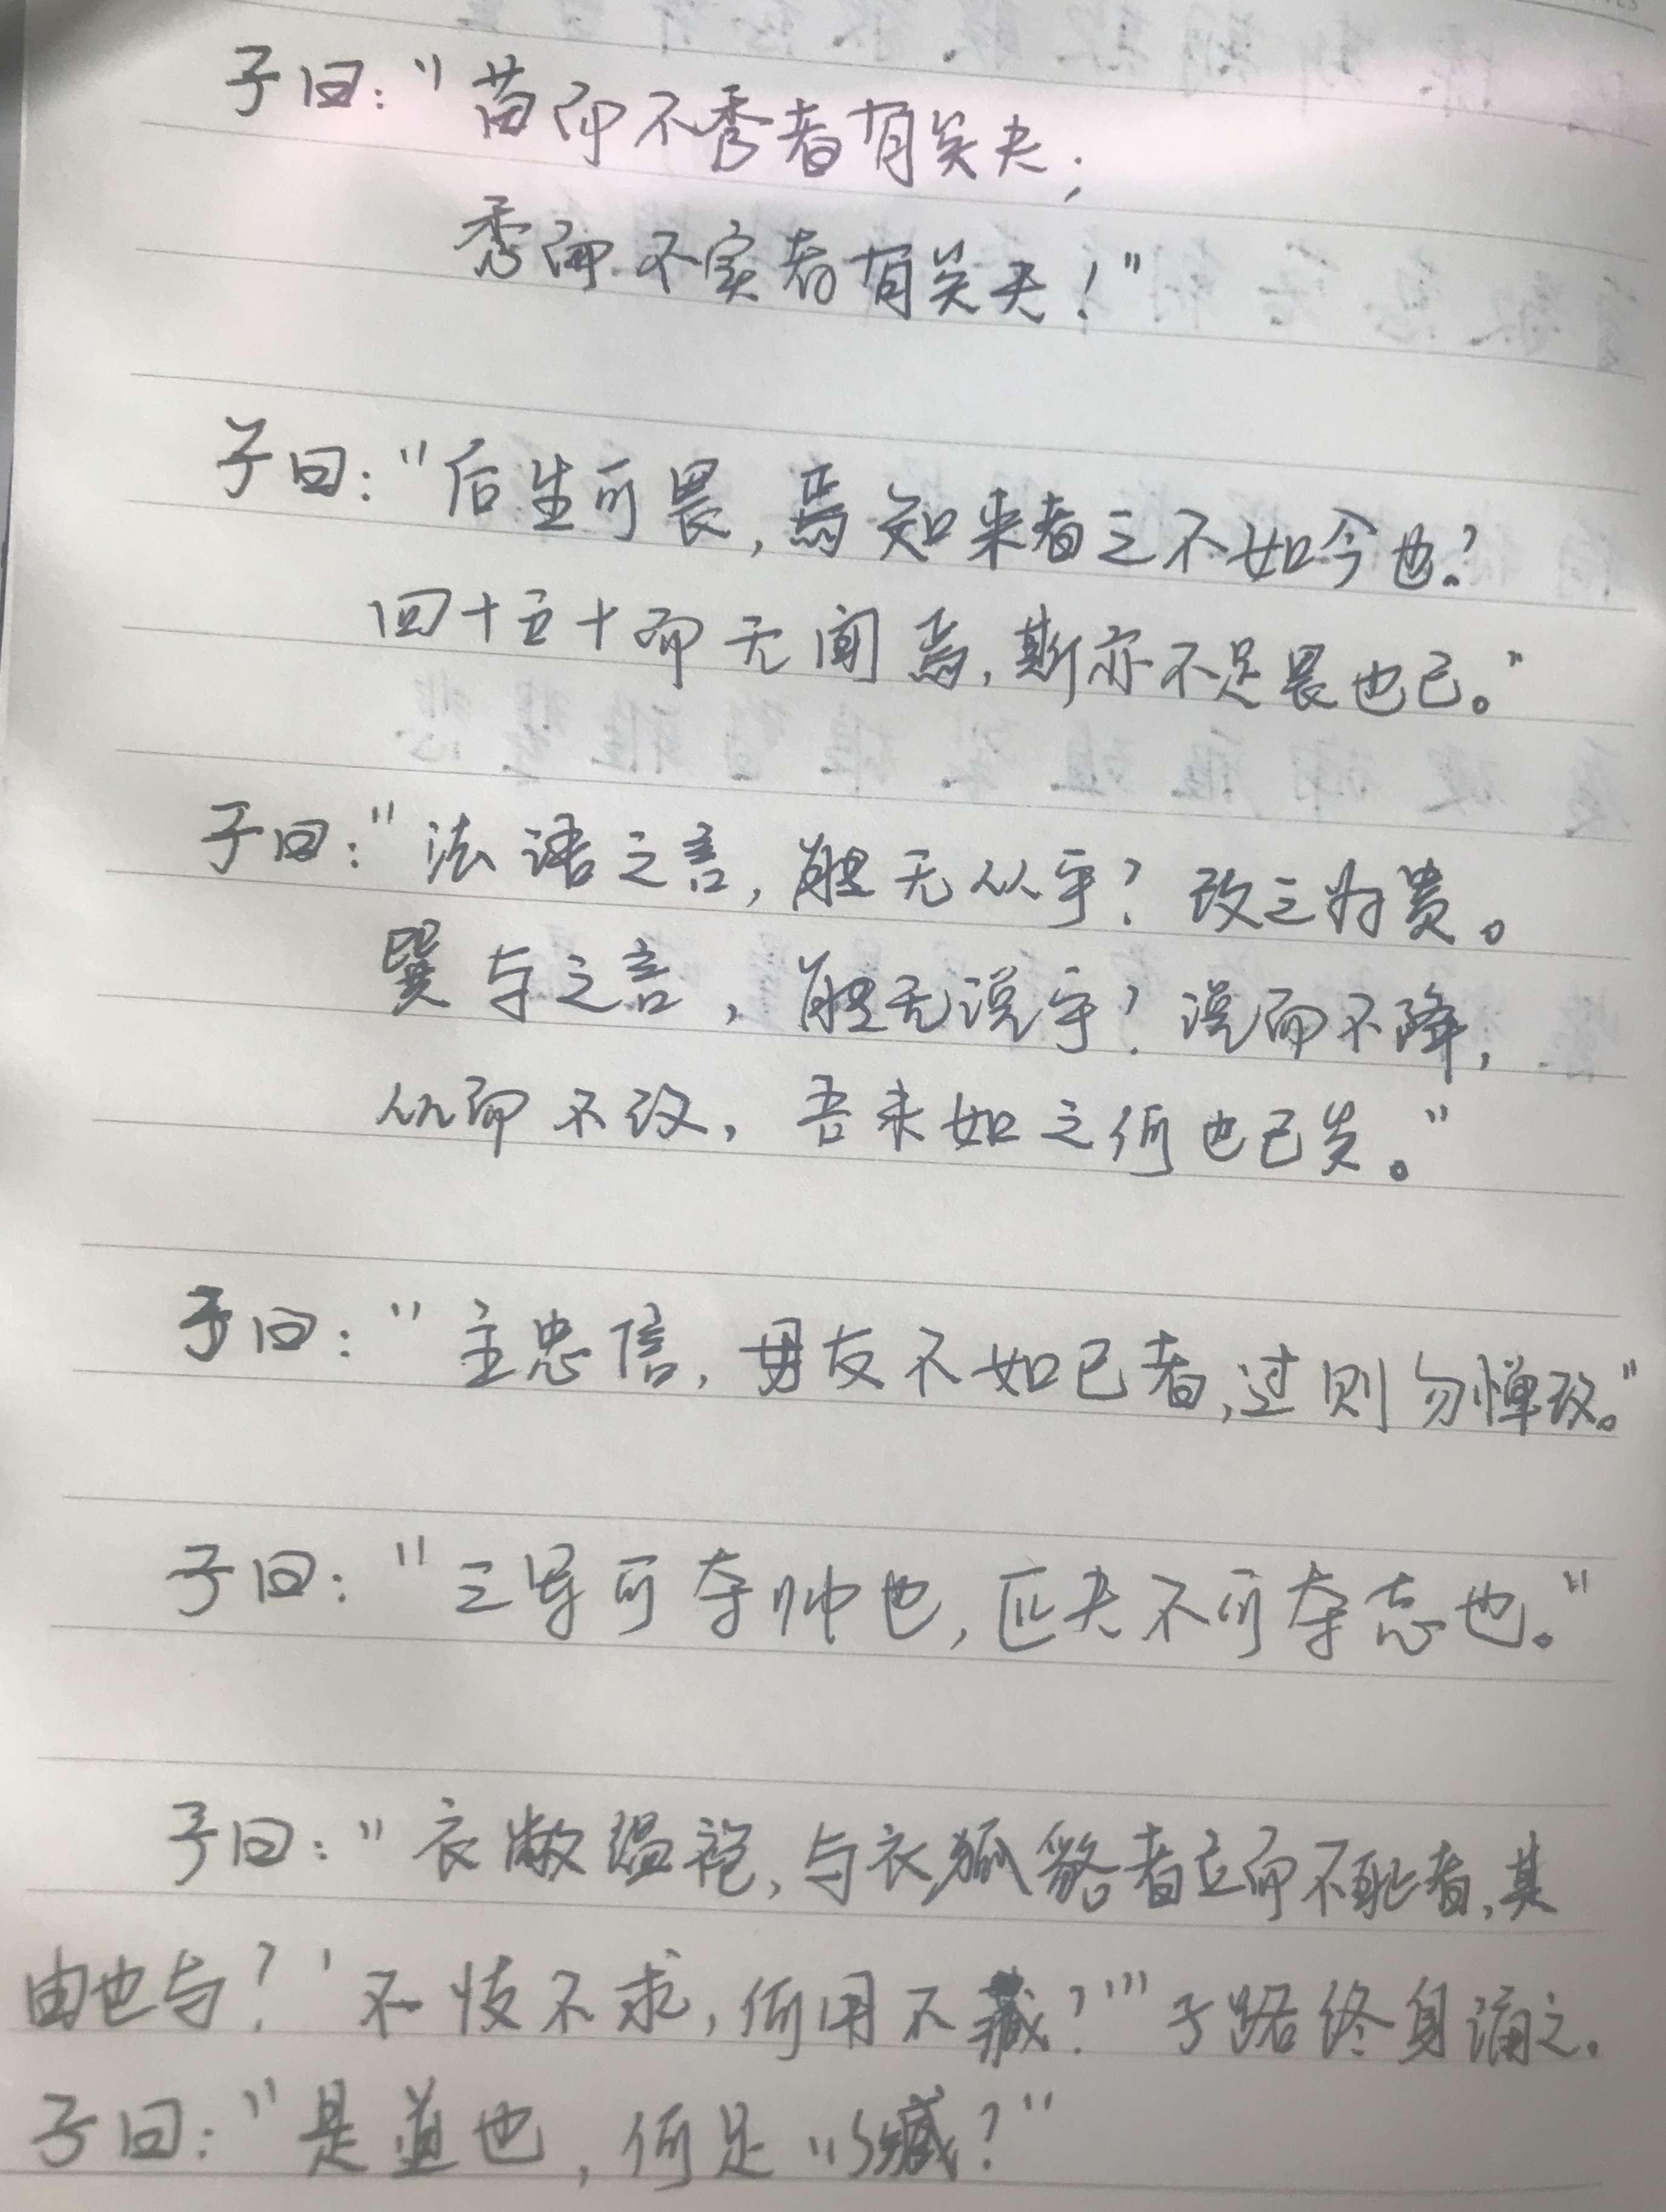 子曰：“苗而不秀者有矣夫；
秀而不实者有矣夫！”
子曰：“后生可畏，焉知来者之不如今也？
四十五十而无闻焉，斯亦不足畏也已。”
子曰：“法语之言，能无从乎？改之为贵。
巽与之言，能无说乎？说而不绎，
从而不改，吾未如之何也已矣。”
子曰：“主忠信，毋友不如己者，过则勿惮改。”
子曰：“三军可夺帅也，匹夫不可夺志也。”
子曰：“衣敝缊袍，与衣狐貉者立而不耻者，其
由也与？‘不忮不求，何用不臧？’”子路终身诵之。
子曰：“是道也，何足以臧？”